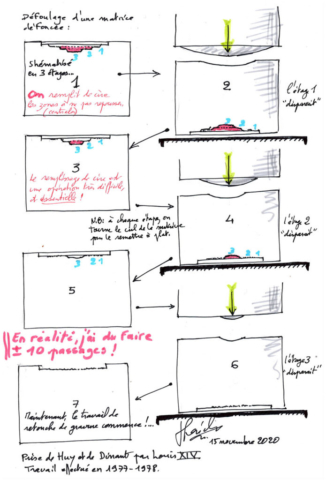 Défoulage d'une matrice
défoncée :
Shématisé
en 3 étages...
3 2 1
1
On remplit de cire
les zones à ne pas repousser
(centrales)
2
3 2 1
l'étage 1
"disparaît"
3 2 1
3
Le remplissage de cire est
une opération très difficile,
et essentielle !
N.B: à chaque étape, on
tourne le cul de la matrice
pour le remettre à plat.
4
3 2 1
l'étage 2
"disparaît"
3 2 1
5
En réalité, j'ai dû faire
± 10 passages !
6
l'étage 3
"disparaît"
7
Maintenant, le travail de
retouche de gravure commence !...
15 novembre 2020
Prise de Huy et de Dinant par Louis XIV.
Travail effectué en 1977-1978.